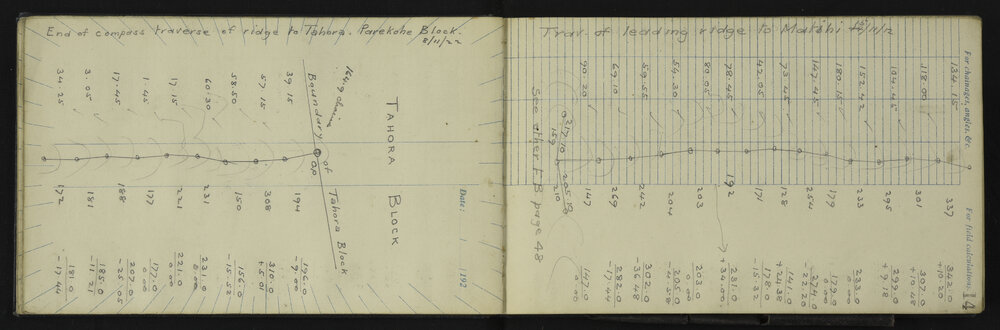 End of compass traverse of ridge to Tahora. Parekahe Block.
8/11/22
34.25
3.05
17.45
1.45
17.15
60.30
58.50
57.15
39.15
1649 chains
Boundary of Tahora Block
O.P.
TAHORA
BLOCK
172
181
188
177
221
231
150
308
194
Date:
192
181.0
-17.44
185.0
-11.21
207.0
-25.05
177.0
0.00
221.0
0.00
231.0
0.00
156.0
-15.52
310.0
+5.01
196.0
-9.00
Trav. of leading ridge to Matahi 15/11/12
For chainages, angles, &c.
90.20
69.10
59.55
54.30
80.05
78.45
42.05
73.45
147.45
180.15
152.42
104.45
118.00
134.15
See other F.B page 48
217.10
159
205.19
210
147
269
242
204
203
192
171
128
254
179
233
295
301
337
For field calculations.
14
147.0
0.00
282.0
-17.44
302.0
-36.48
205.0
-4.58
203.0
0.00
231.0
+34.00
178.0
-15.32
141.0
+24.38
274.0
-22.20
179.0
0.00
233.0
0.00
292.0
+9.18
307.0
+10.48
342.0
+10.20